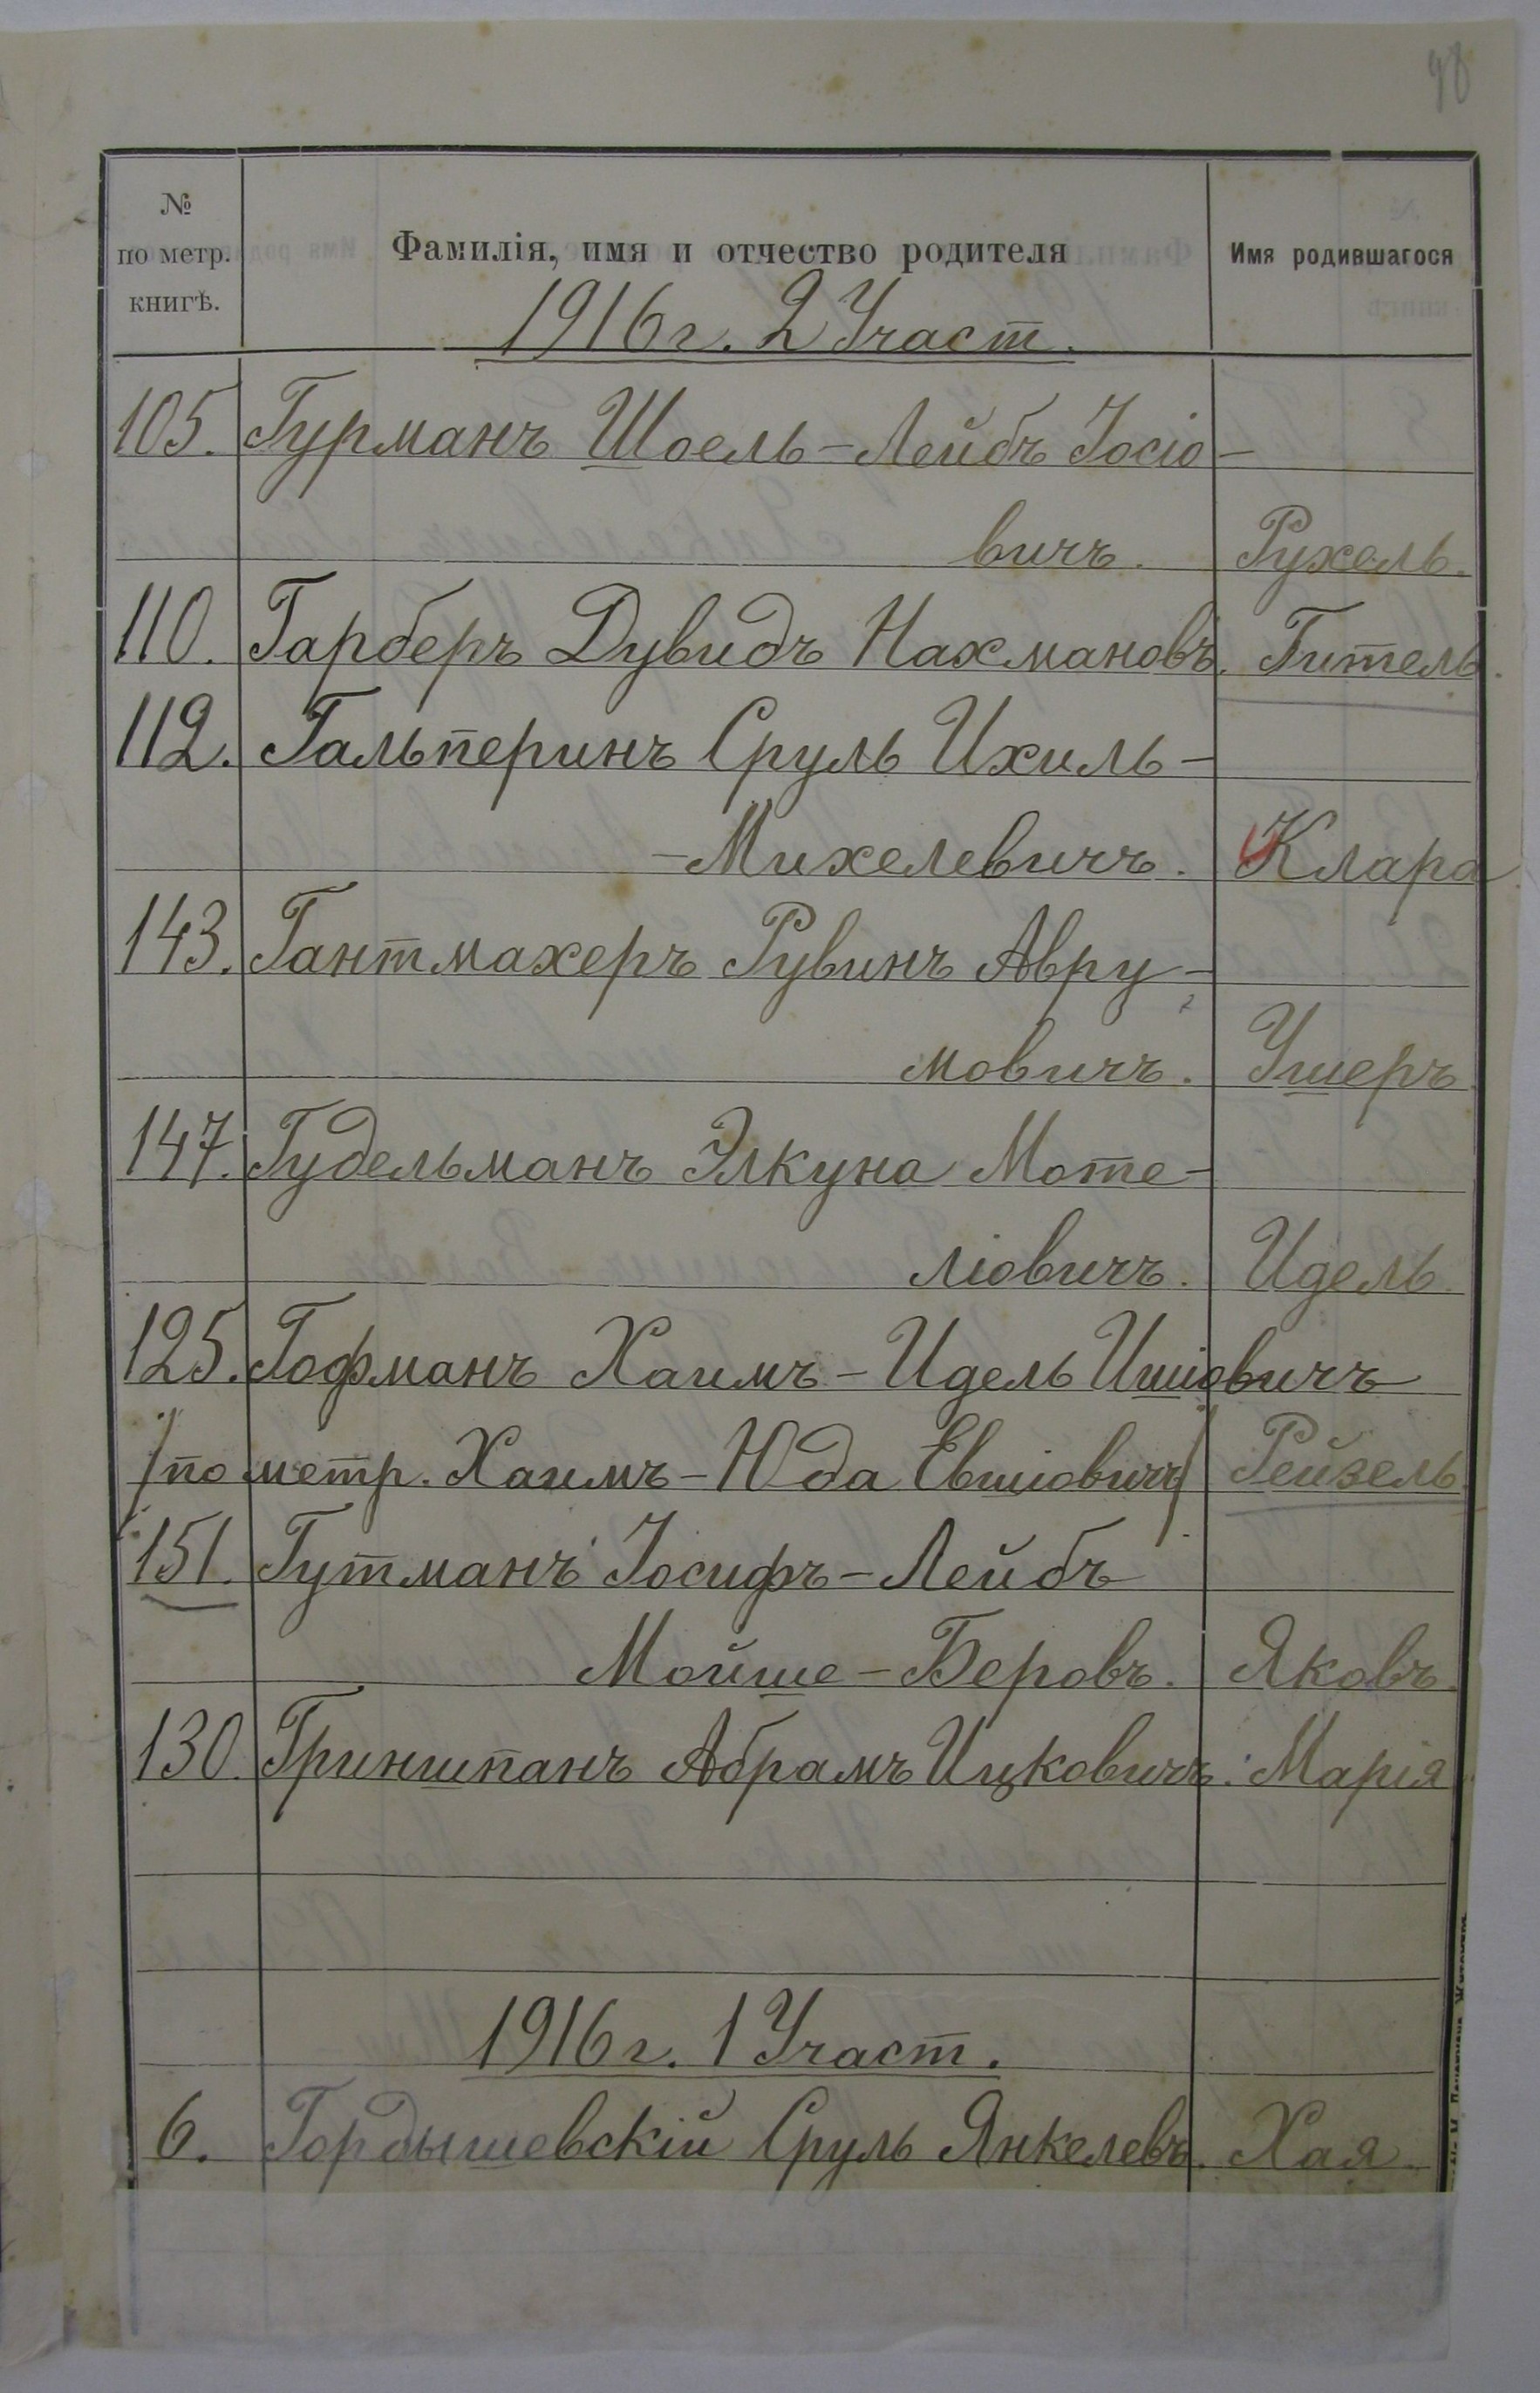 98
№ по метр. книгѣ.
Фамилія, имя и отчество родителя
Имя родившагося
1916 г. 2 Участ.
105. Гурманъ Шоель-Лейбъ Іосіо-
вичъ. Рухель.
110. Гарберъ Дувидъ Нахмановъ. Гитель.
112. Гальперинъ Сруль Ихиль-
-Михелевичъ. Клара
143. Гантмахеръ Рувинъ Авру-
мовичъ. Ушеръ.
147. Гудельманъ Элкуна Моте-
ліовичъ. Идель.
125. Гофманъ Хаимъ-Идель Ишіовичъ
/по метр. Хаимъ-Юда Евшіовичъ/ Рейзель.
151. Гутманъ Іосифъ-Лейбъ
Мойше-Беровъ. Яковъ.
130. Гриншпанъ Абрамъ Ицковичъ. Марія
1916 г. 1 Участ.
6. Гордышевскій Сруль Янкелевъ. Хая.